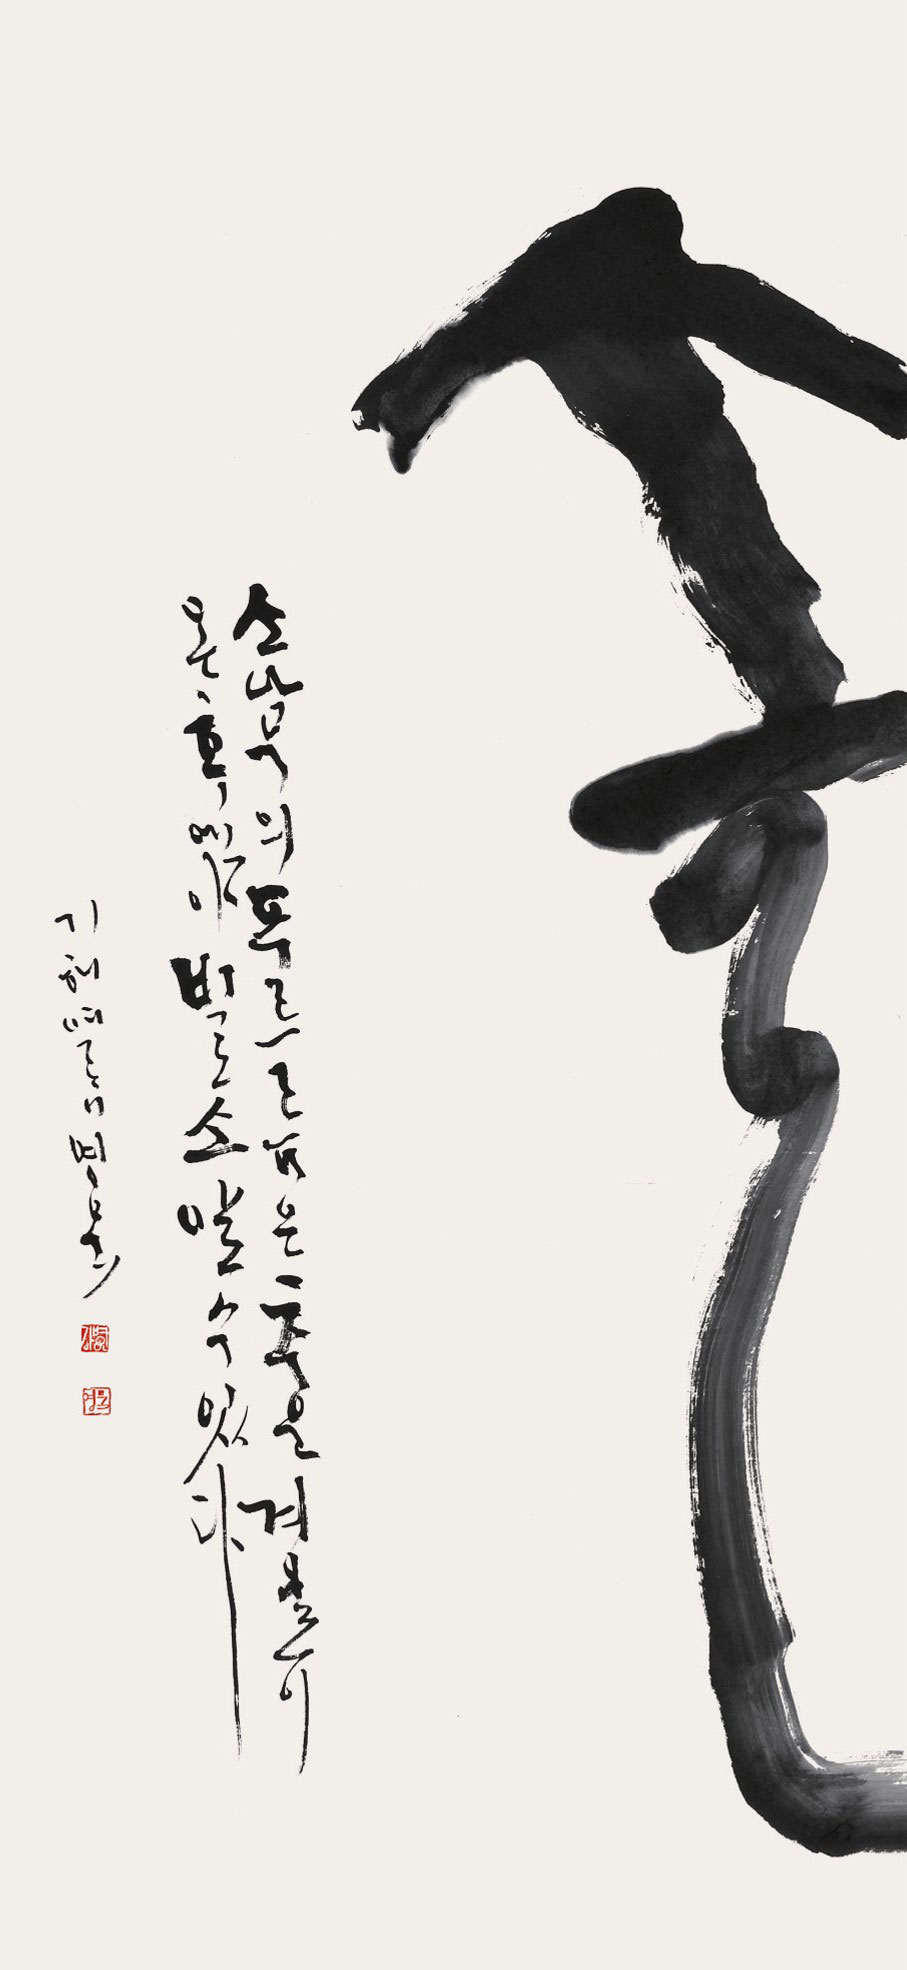 소나무의 푸르름은 추운 겨울이
온 후에야 비로소 알 수 있다
기해 여름